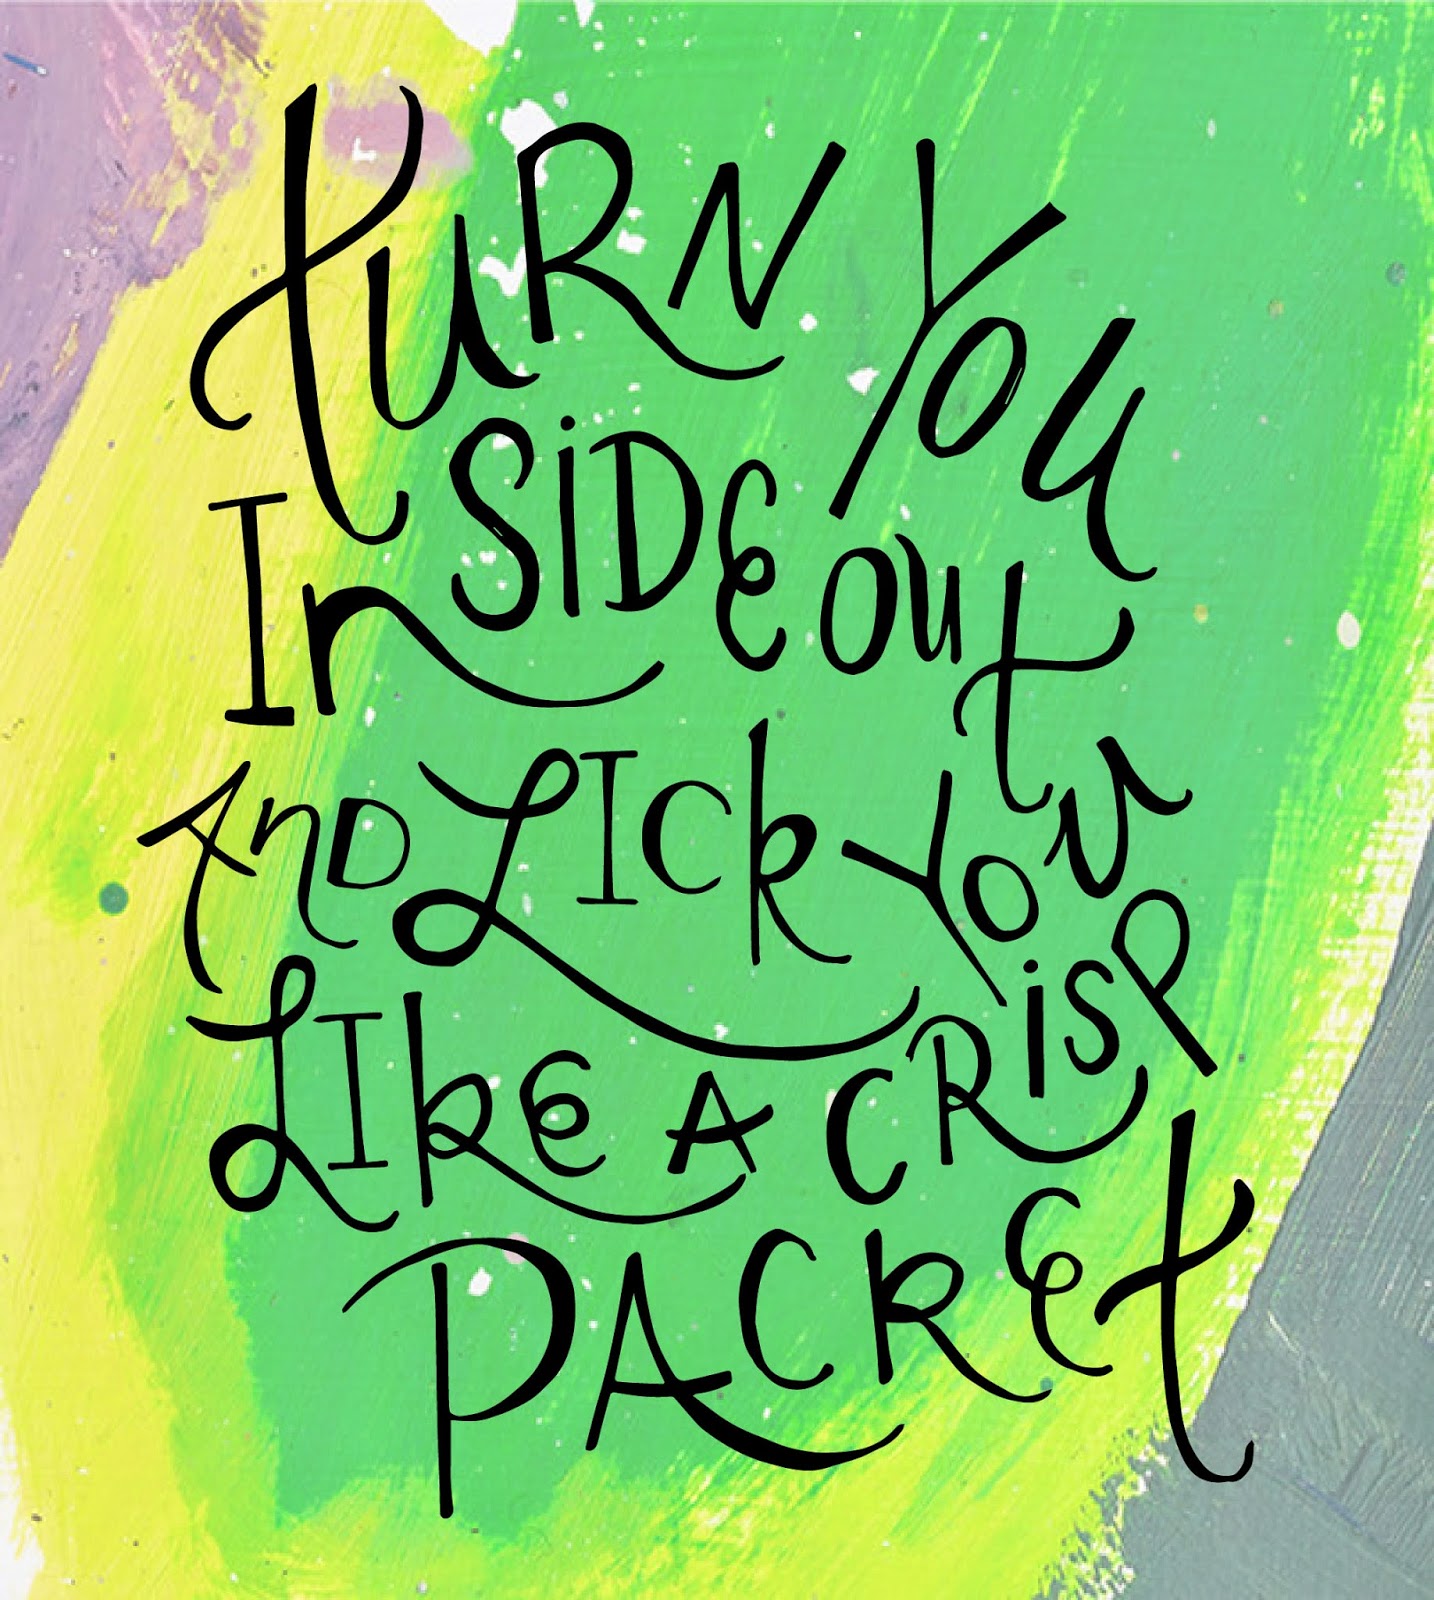 TURN YOU
INSIDE OUT
AND LICK YOU
LIKE A CRISP
PACKET